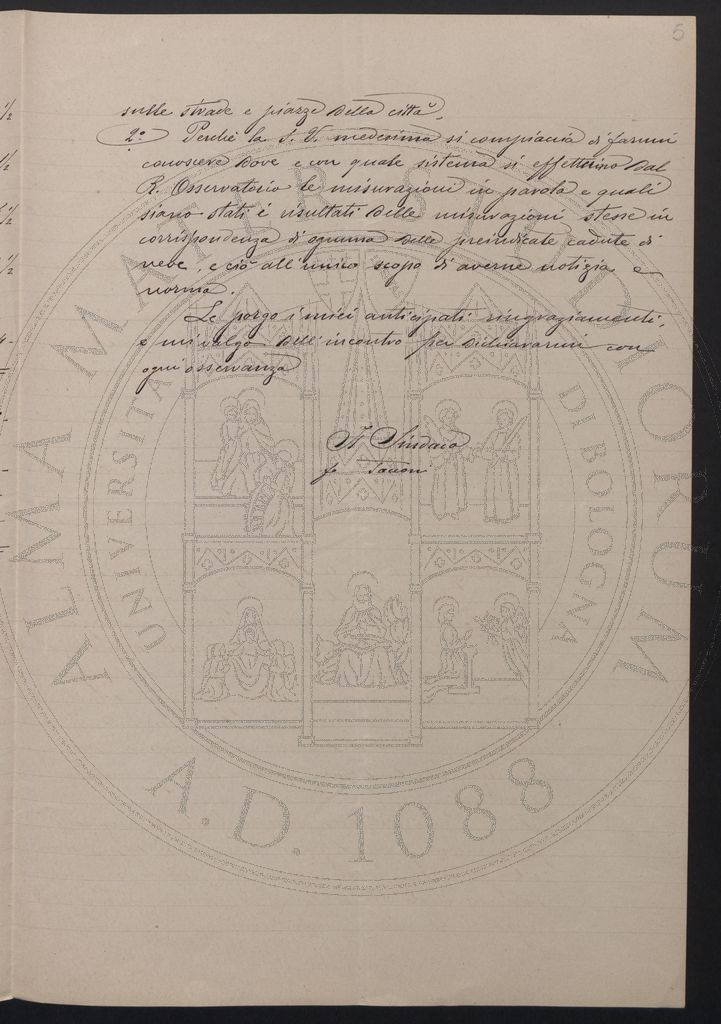 6
sulle strade e piazze della città,
2.° Perchè la S. V. medesima si compiaccia di farmi
conoscere dove e con quale sistema si effettuino dal
R. Osservatorio le misurazioni in parola e quali
siano stati i risultati delle misurazioni stesse in
corrispondenza di ognuna delle preindicate cadute di
neve, e ciò all'unico scopo di averne notizia e
norma.
Le porgo i miei anticipati ringraziamenti,
e mi valgo dell'incontro per dichiararmi con
ogni osservanza
Il Sindaco
fo Tacconi
1/2
1/2
1/2
1/2
ALMA MATER STUDIORUM
UNIVERSITÀ DI BOLOGNA
A.D. 1088